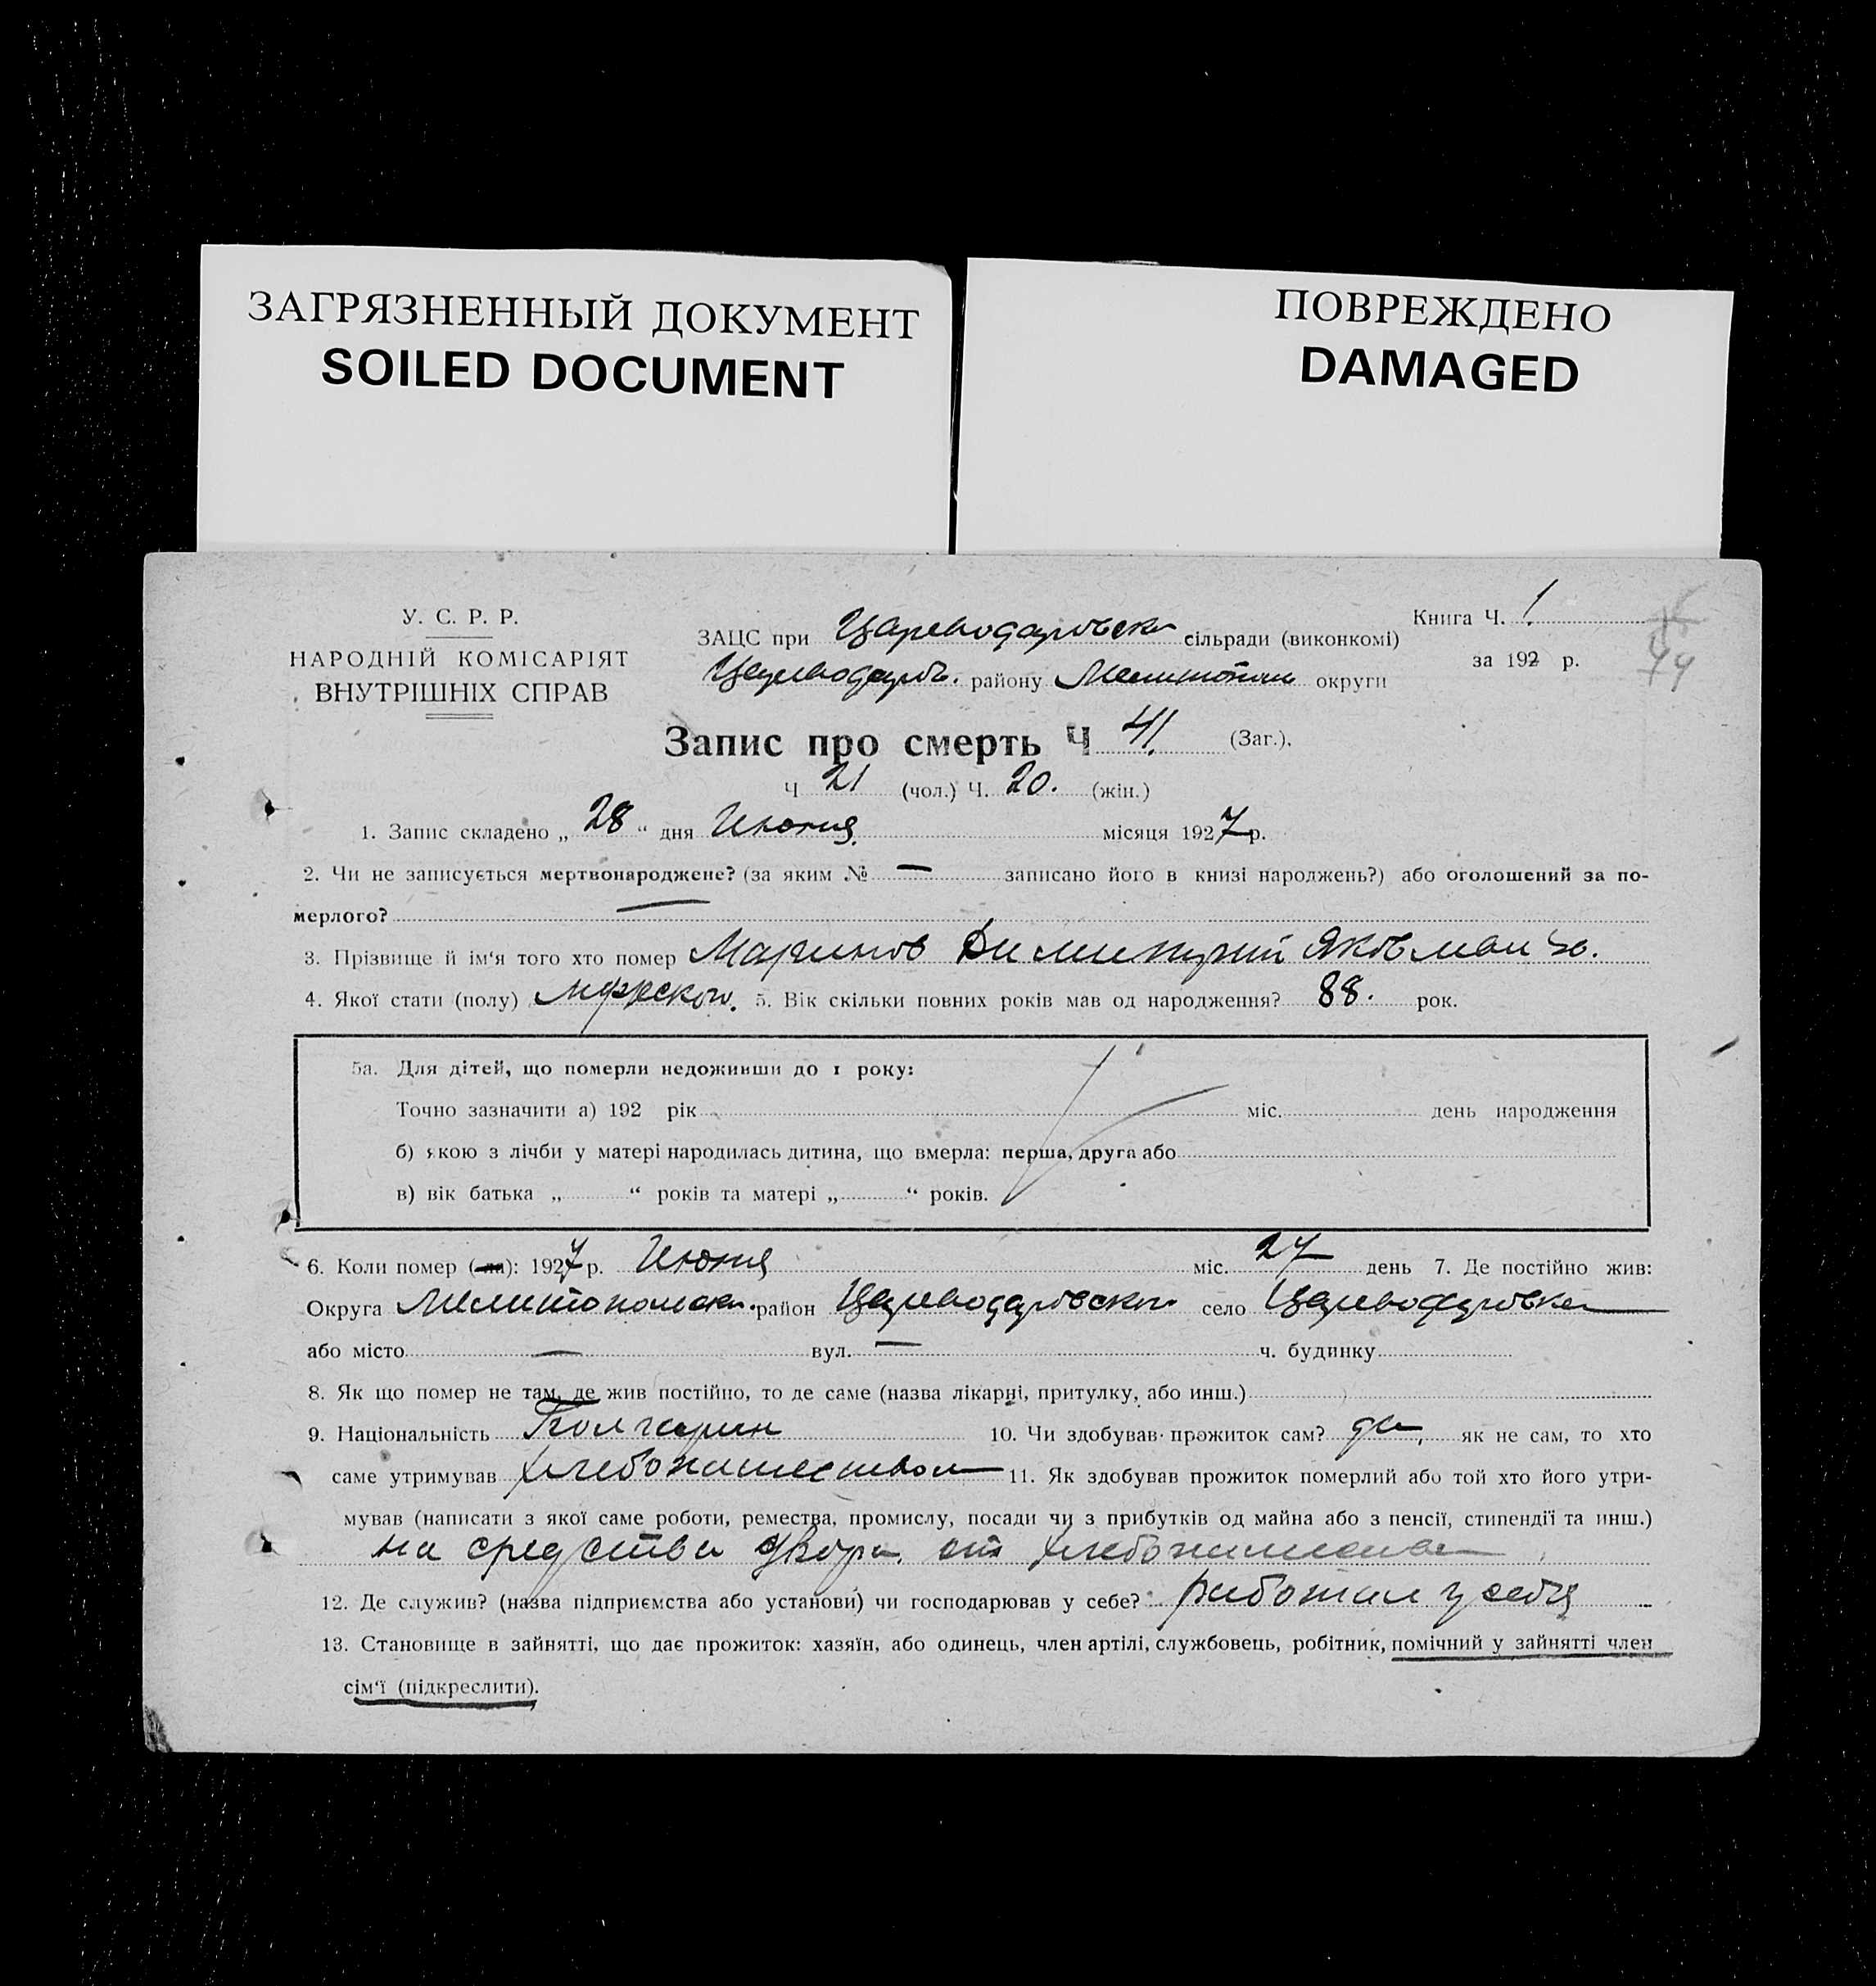 ЗАГРЯЗНЕННЫЙ ДОКУМЕНТ
SOILED DOCUMENT
ПОВРЕЖДЕНО
DAMAGED
У. С. Р. Р.
НАРОДНІЙ КОМІСАРІЯТ
ВНУТРІШНІХ СПРАВ
Книга Ч. 1.
за 192 р.
ЗАЦС при Цареводаровск сільради (виконкомі)
Цареводаров. району Мелитопол округи
Запис про смерть Ч 41. (Заг.).
Ч 21 (чол.) Ч. 20. (жін.)
1. Запис складено „ 28 “ дня Июня місяця 1927 р.
2. Чи не записується мертвонароджене? (за яким № — записано його в книзі народжень?) або оголошений за по-
мерлого? —
3. Прізвище й ім‘я того хто помер Маринов Димитрий
4. Якої стати (полу) мужского. 5. Вік скільки повних років мав од народження? 88. рок.
5а. Для дітей, що померли недоживши до 1 року:
Точно зазначити а) 192 рік міс. день народження
б) якою з лічби у матері народилась дитина, що вмерла: перша, друга або
в) вік батька „ “ років та матері „ “ років.
6. Коли помер (ла): 1927 р. Июня міс. 27 день 7. Де постійно жив:
Округа Мелитопольск. район Цареводаровский село Цареводаровка
або місто — вул. — ч. будинку
8. Як що помер не там, де жив постійно, то де саме (назва лікарні, притулку, або инш.)
9. Національність Болгарин 10. Чи здобував прожиток сам? да, як не сам, то хто
саме утримував хлебопашеством 11. Як здобував прожиток померлий або той хто його утри-
мував (написати з якої саме роботи, ремества, промислу, посади чи з прибутків од майна або з пенсії, стипендії та инш.)
на средства двора, от хлебопашества
12. Де служив? (назва підприємства або установи) чи господарював у себе? работал у себя
13. Становище в зайнятті, що дає прожиток: хазяїн, або одинець, член артілі, службовець, робітник, помічний у зайнятті член
сім‘ї (підкреслити).